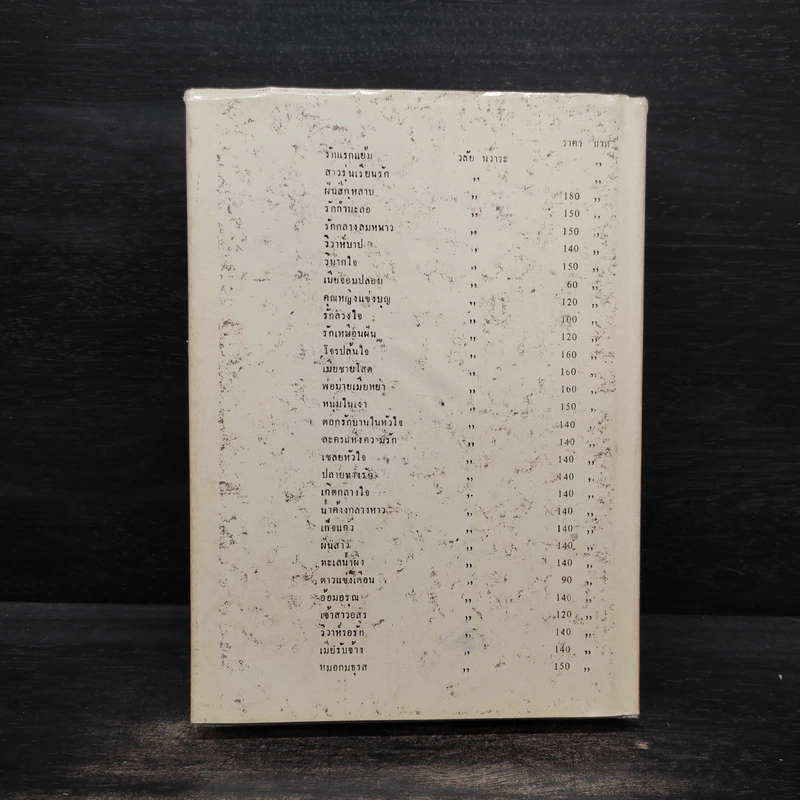 ราคา บาท
รักแรกแย้ม วลัย นวาระ ,,
สาวรุ่นเรียนรัก ,,
ฝันสีกุหลาบ ,, 180 ,,
รักกำมะลอ ,, 150 ,,
รักกลางลมหนาว ,, 150 ,,
วิวาห์บาป ,, 140 ,,
วิบากใจ ,, 150 ,,
เมียจอมปลอม ,, 60 ,,
คุณหญิงแข่งบุญ ,, 120 ,,
รักลวงใจ ,, 100 ,,
รักเหมือนฝัน ,, 120 ,,
โจรปล้นใจ ,, 160 ,,
เมียชายโสด ,, 160 ,,
พ่อม่ายเมียหย่า ,, 160 ,,
หนุ่มในเงา ,, 150 ,,
ดอกรักบานในหัวใจ ,, 140 ,,
ละครแห่งความรัก ,, 140 ,,
เชลยหัวใจ ,, 140 ,,
ปลายทางรัก ,, 140 ,,
เกิดกลางใจ ,, 140 ,,
น้ำค้างกลางหาว ,, 140 ,,
เก็จแก้ว ,, 140 ,,
ฝันสาว ,, 140 ,,
ทะเลน้ำผึ้ง ,, 140 ,,
ดาวแข่งเดือน ,, 90 ,,
อ้อมอรุณ ,, 140 ,,
เจ้าสาวอสูร ,, 120 ,,
วิวาห์รอรัก ,, 140 ,,
เมียรับจ้าง ,, 140 ,,
หมอกมธุรส ,, 150 ,,